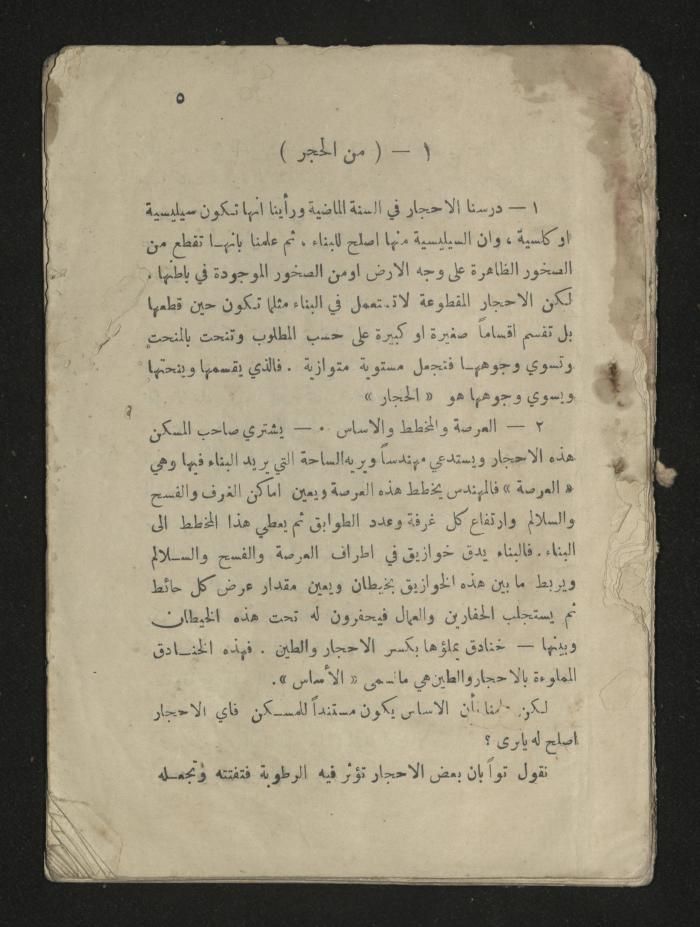 ٥
١ — ( من الحجر )
١ — درسنا الاحجار في السنة الماضية ورأينا انها تكون سيليسية
او كلسية ، وان السيليسية منها اصلح للبناء ، ثم علمنا بانها تقطع من
الصخور الظاهرة على وجه الارض اومن الصخور الموجودة في باطنها .
لكن الاحجار المقطوعة لاتستعمل في البناء مثلما تكون حين قطعها
بل تقسم اقساماً صغيرة او كبيرة على حسب المطلوب وتنحت بالمنحت
وتسوي وجوهها فتجعل مستوية متوازية . فالذي يقسمها وينحتها
ويسوي وجوهها هو « الحجار »
٢ — العرصة والمخطط والاساس . — يشتري صاحب المسكن
هذه الاحجار ويستدعي مهندساً ويريه الساحة التي يريد البناء فيها وهي
« العرصة » فالمهندس يخطط هذه العرصة ويعين اماكن الغرف والفسح
والسلالم وارتفاع كل غرفة وعدد الطوابق ثم يعطي هذا المخطط الى
البناء . فالبناء يدق خوازيق في اطراف العرصة والفسح والسلالم
ويربط ما بين هذه الخوازيق بخيطان ويعين مقدار عرض كل حائط
ثم يستجلب الحفارين والعمال فيحفرون له تحت هذه الخيطان
وبينها — خنادق يملؤها بكسر الاحجار والطين . فهذه الخنادق
المملوءة بالاحجار والطين هي مانسمى « الأساس » .
لكن أن الاساس يكون مستنداً للمسكن فاي الاحجار
اصلح له ياترى ؟
نقول تواً بان بعض الاحجار تؤثر فيه الرطوبة فتفتته وتجعله